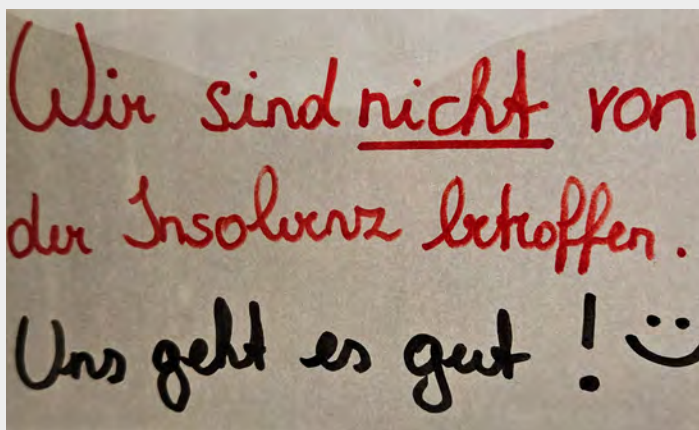 Wir sind nicht von
der Insolvenz betroffen.
Uns geht es gut ! :)